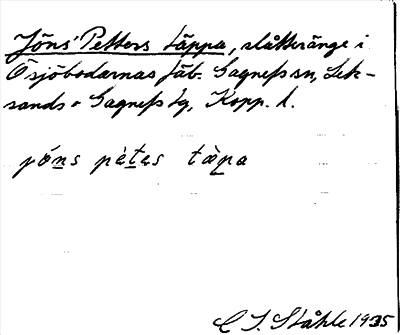 Jöns Petters täppa, slåtteränge i
Ösjöbodarnas fäb. Gagnefs sn, Lek-
sands o Gagnefs tg, Kopp. l.
jö́ns pètes tàpa
C I. Ståhle 1935